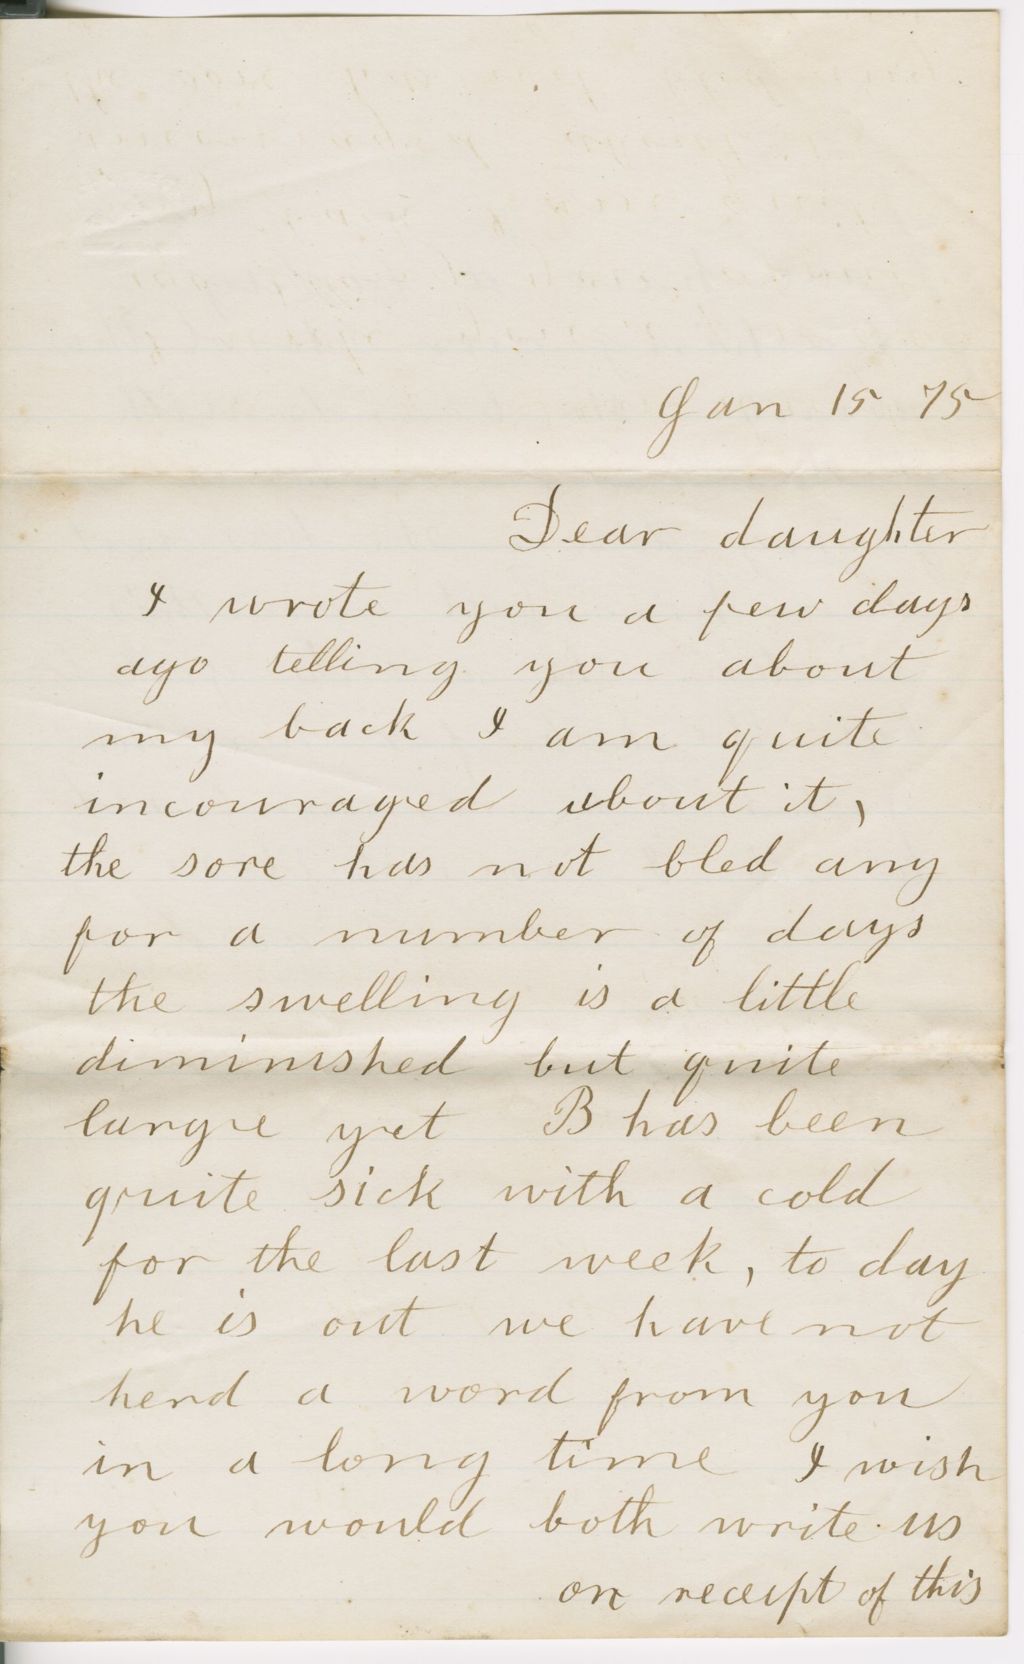 Jan 15 75
Dear daughter
I wrote you a few days
ago telling you about
my back I am quite
incouraged about it,
the sore has not bled any
for a number of days
the swelling is a little
diminished but quite
large yet B has been
quite sick with a cold
for the last week, to day
he is out we have not
herd a word from you
in a long time I wish
you would both write us
on receipt of this